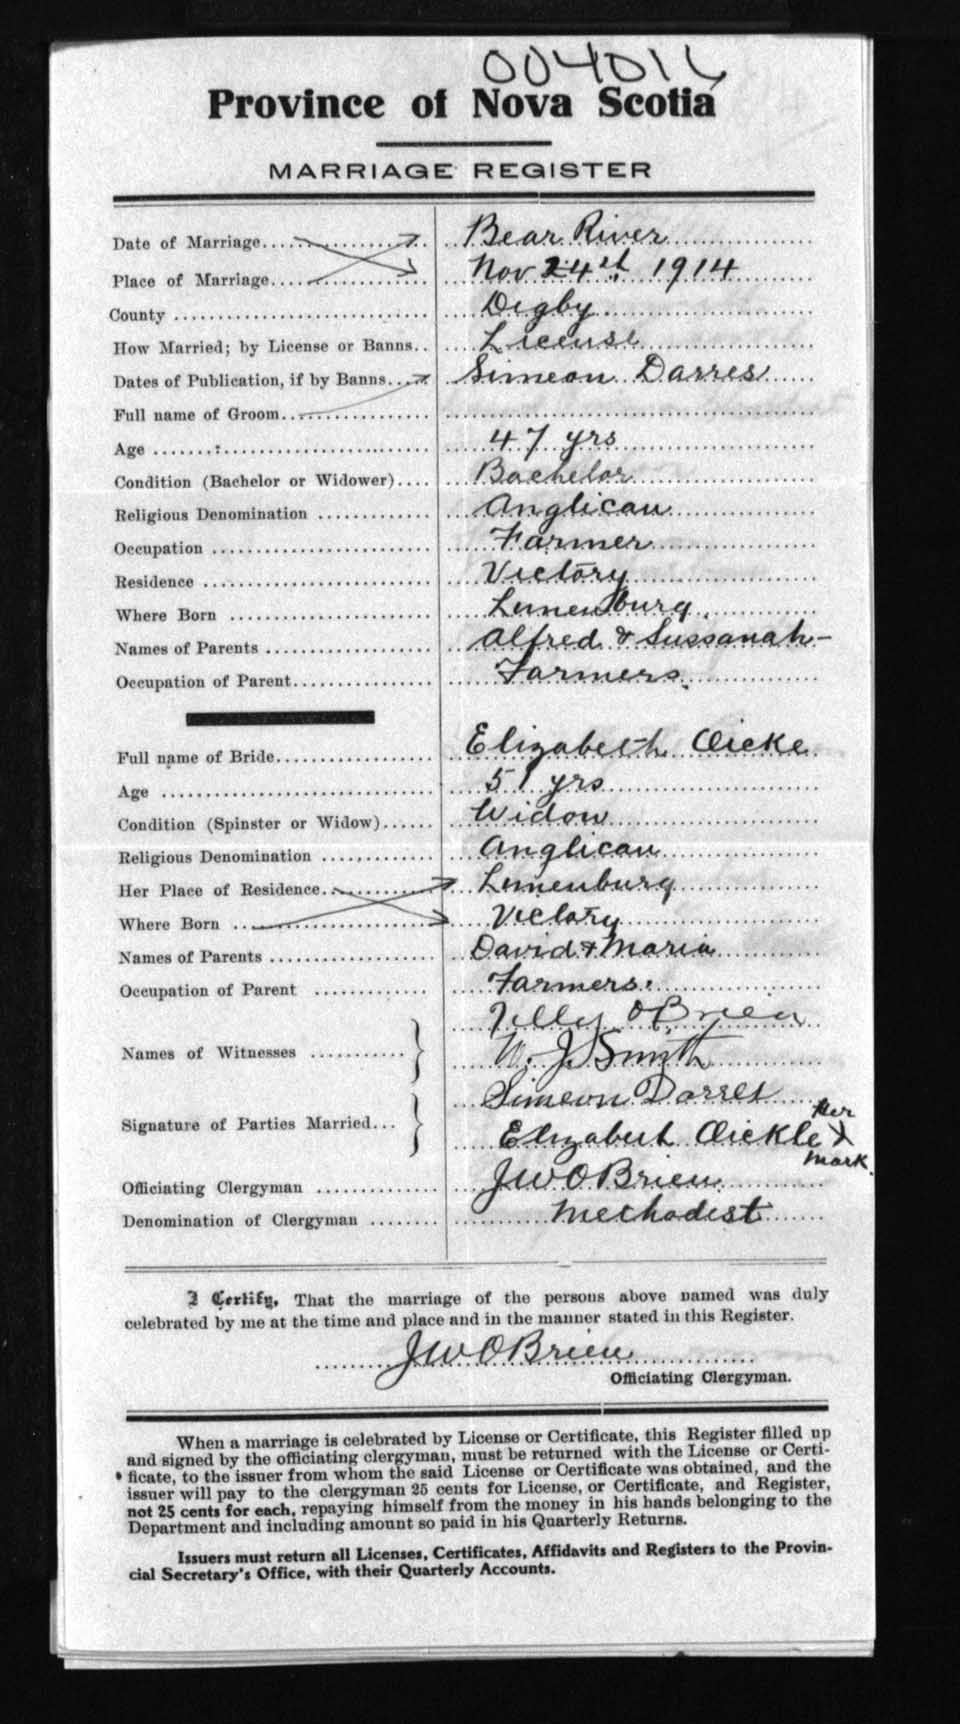 004016
Province of Nova Scotia
MARRIAGE REGISTER
Date of Marriage Bear River
Place of Marriage Nov 24th 1914
County Digby
How Married; by License or Banns License
Dates of Publication, if by Banns Simeon Darres
Full name of Groom
Age 47 yrs
Condition (Bachelor or Widower) Bachelor
Religious Denomination Anglican
Occupation Farmer
Residence Victory
Where Born Lunenburg
Names of Parents Alfred & Sussanah -
Occupation of Parent Farmers.
Full name of Bride Elizabeth Oicke
Age 51 yrs
Condition (Spinster or Widow) Widow
Religious Denomination Anglican
Her Place of Residence Lunenburg
Where Born Victory
Names of Parents David & Maria
Occupation of Parent Farmers.
OBrien
Names of Witnesses W. J. Smith
Simeon Darres
Signature of Parties Married Elizabeth Oickle Her X mark.
Officiating Clergyman JWOBrien
Denomination of Clergyman Methodist
I Certify, That the marriage of the persons above named was duly
celebrated by me at the time and place and in the manner stated in this Register.
JWOBrien
Officiating Clergyman.
When a marriage is celebrated by License or Certificate, this Register filled up
and signed by the officiating clergyman, must be returned with the License or Certi-
ficate, to the issuer from whom the said License or Certificate was obtained, and the
issuer will pay to the clergyman 25 cents for License, or Certificate, and Register,
not 25 cents for each, repaying himself from the money in his hands belonging to the
Department and including amount so paid in his Quarterly Returns.
Issuers must return all Licenses, Certificates, Affidavits and Registers to the Provin-
cial Secretary's Office, with their Quarterly Accounts.